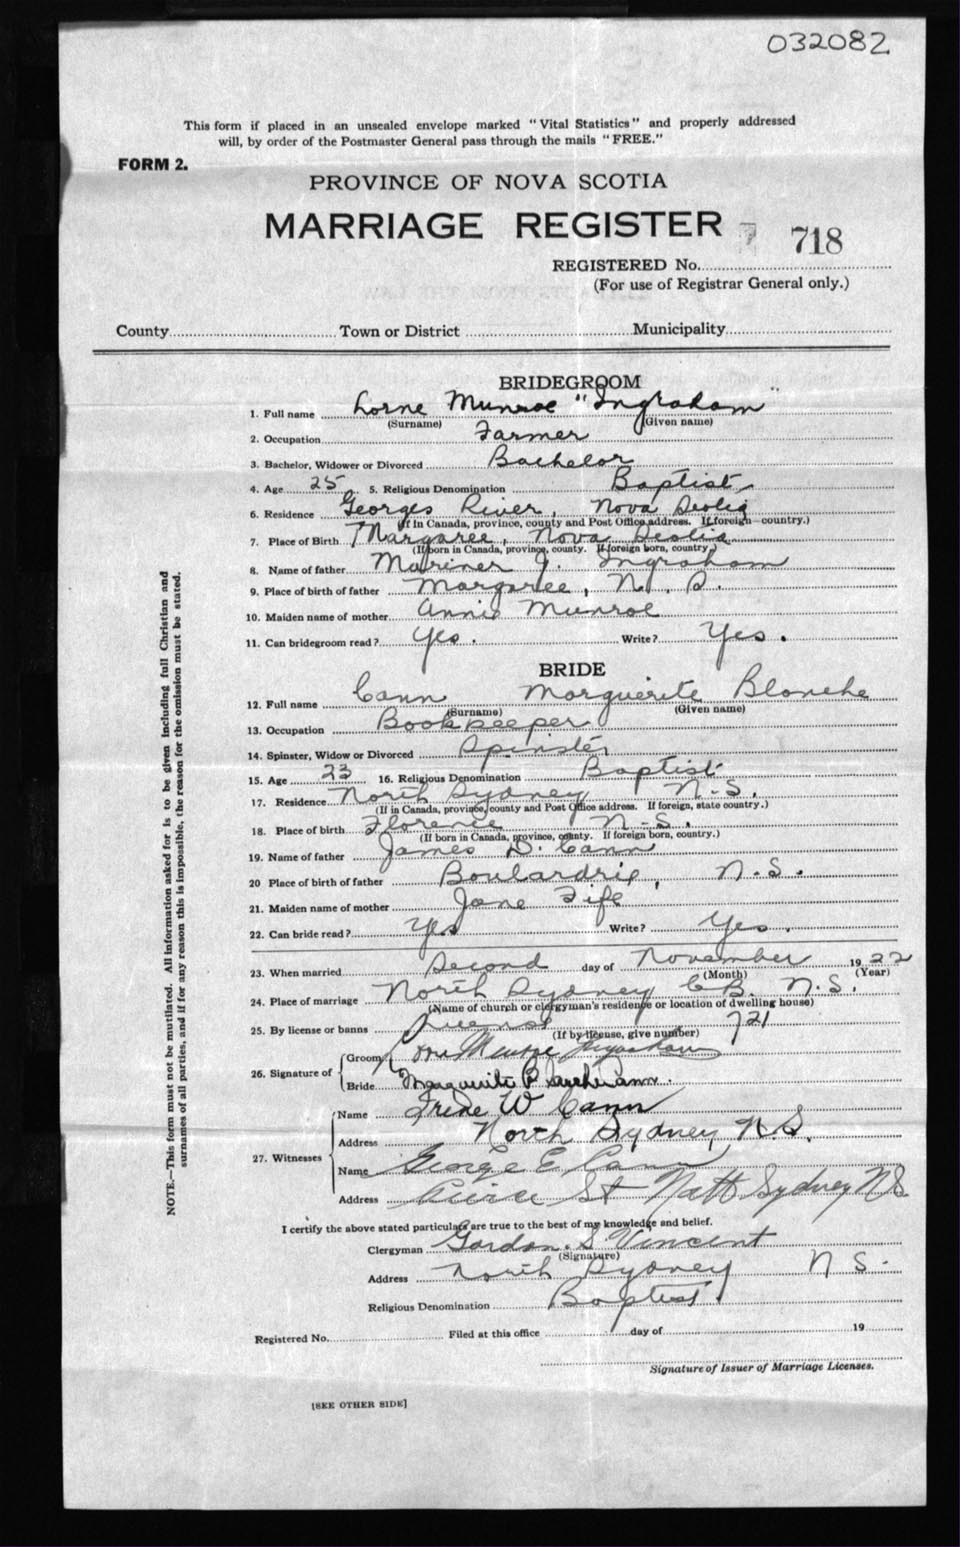 032082
This form if placed in an unsealed envelope marked "Vital Statistics" and properly addressed
will, by order of the Postmaster General pass through the mails "FREE."
FORM 2.
PROVINCE OF NOVA SCOTIA
MARRIAGE REGISTER 718
REGISTERED No.
(For use of Registrar General only.)
County Town or District Municipality
BRIDEGROOM
1. Full name Lorne Munroe "Ingraham"
(Surname) (Given name)
2. Occupation Farmer
3. Bachelor, Widower or Divorced Bachelor
4. Age 25 5. Religious Denomination Baptist
6. Residence Georges River, Nova Scotia
(If in Canada, province, county and Post Office address. If foreign country.)
7. Place of Birth Margaree, Nova Scotia
(If born in Canada, province, county. If foreign born, country.)
8. Name of father Mariner J. Ingraham
9. Place of birth of father Margaree, N. S.
10. Maiden name of mother Annie Munroe
11. Can bridegroom read? Yes. Write? Yes.
BRIDE
12. Full name Cann Marguerite Blanche
(Surname) (Given name)
13. Occupation Bookkeeper
14. Spinster, Widow or Divorced Spinster
15. Age 23 16. Religious Denomination Baptist
17. Residence North Sydney N.S.
(If in Canada, province, county and Post Office address. If foreign, state country.)
18. Place of birth Florence N.S.
(If born in Canada, province, county. If foreign born, country.)
19. Name of father James D. Cann
20 Place of birth of father Boulardrie, N.S.
21. Maiden name of mother Jane Fife
22. Can bride read? Yes Write? Yes.
23. When married Second day of November 1922
(Month) (Year)
24. Place of marriage North Sydney C.B. N.S.
(Name of church or clergyman's residence or location of dwelling house)
25. By license or banns License 721
(If by license, give number)
26. Signature of Groom Lorne Munroe Ingraham
Bride Marguerite B Cann.
27. Witnesses
Name Irene W Cann
Address North Sydney N.S.
Name George E Cann
Address St North Sydney NS
I certify the above stated particulars are true to the best of my knowledge and belief.
Clergyman Gordon S. Vincent
(Signature)
Address North Sydney N S.
Religious Denomination Baptist.
Registered No. Filed at this office day of 19
Signature of Issuer of Marriage Licenses.
[SEE OTHER SIDE]
NOTE.—This form must not be mutilated. All information asked for is to be given including full Christian and
surnames of all parties, and if for any reason this is impossible, the reason for the omission must be stated.